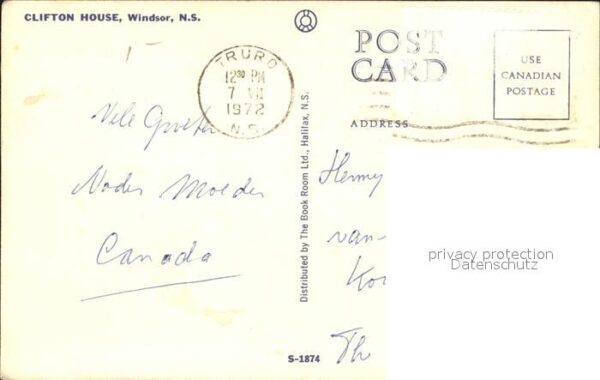 CLIFTON HOUSE, Windsor, N.S.
TRURO
12 30 PM
7 VII
1972
N.S.
POST
CARD
USE
CANADIAN
POSTAGE
ADDRESS
Vele Groeten
Moeder
Canada
Distributed by The Book Room Ltd., Halifax, N.S.
S-1874
Hermy
van-
Th
privacy protection
Datenschutz